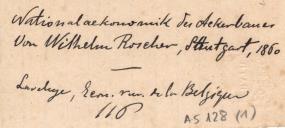 Nationalaekonomik des Ackerbaues
Von Wilhelm Roscher, Stuttgart, 1860
—
Laveleye, Econ. rur. de la Belgique
116
AS 128 (1)